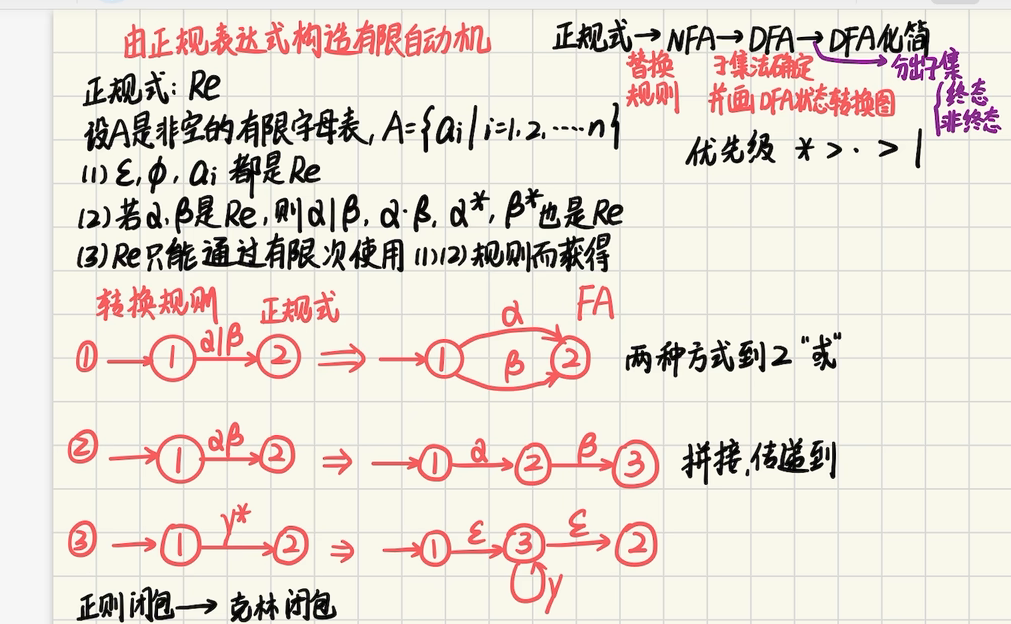 由正规表达式构造有限自动机
正规式→NFA→DFA→DFA化简
替换规则
子集法确定并画DFA状态转换图
分出子集
{终态
非终态
正规式: Re
设A是非空的有限字母表, A={ai|i=1.2.…..n}
优先级 * > · > |
(1) ε, φ, ai 都是Re
(2) 若α.β是Re, 则α|β, α·β, α*, β*也是Re
(3) Re只能通过有限次使用(1)(2)规则而获得
转换规则 正规式 FA
① → 1 α|β 2 ⇒ → 1 α β 2 两种方式到2 "或"
② → 1 αβ 2 ⇒ → 1 α 2 β 3 拼接.传递到
③ → 1 γ* 2 ⇒ → 1 ε 3 ε 2 γ
正则闭包→克林闭包